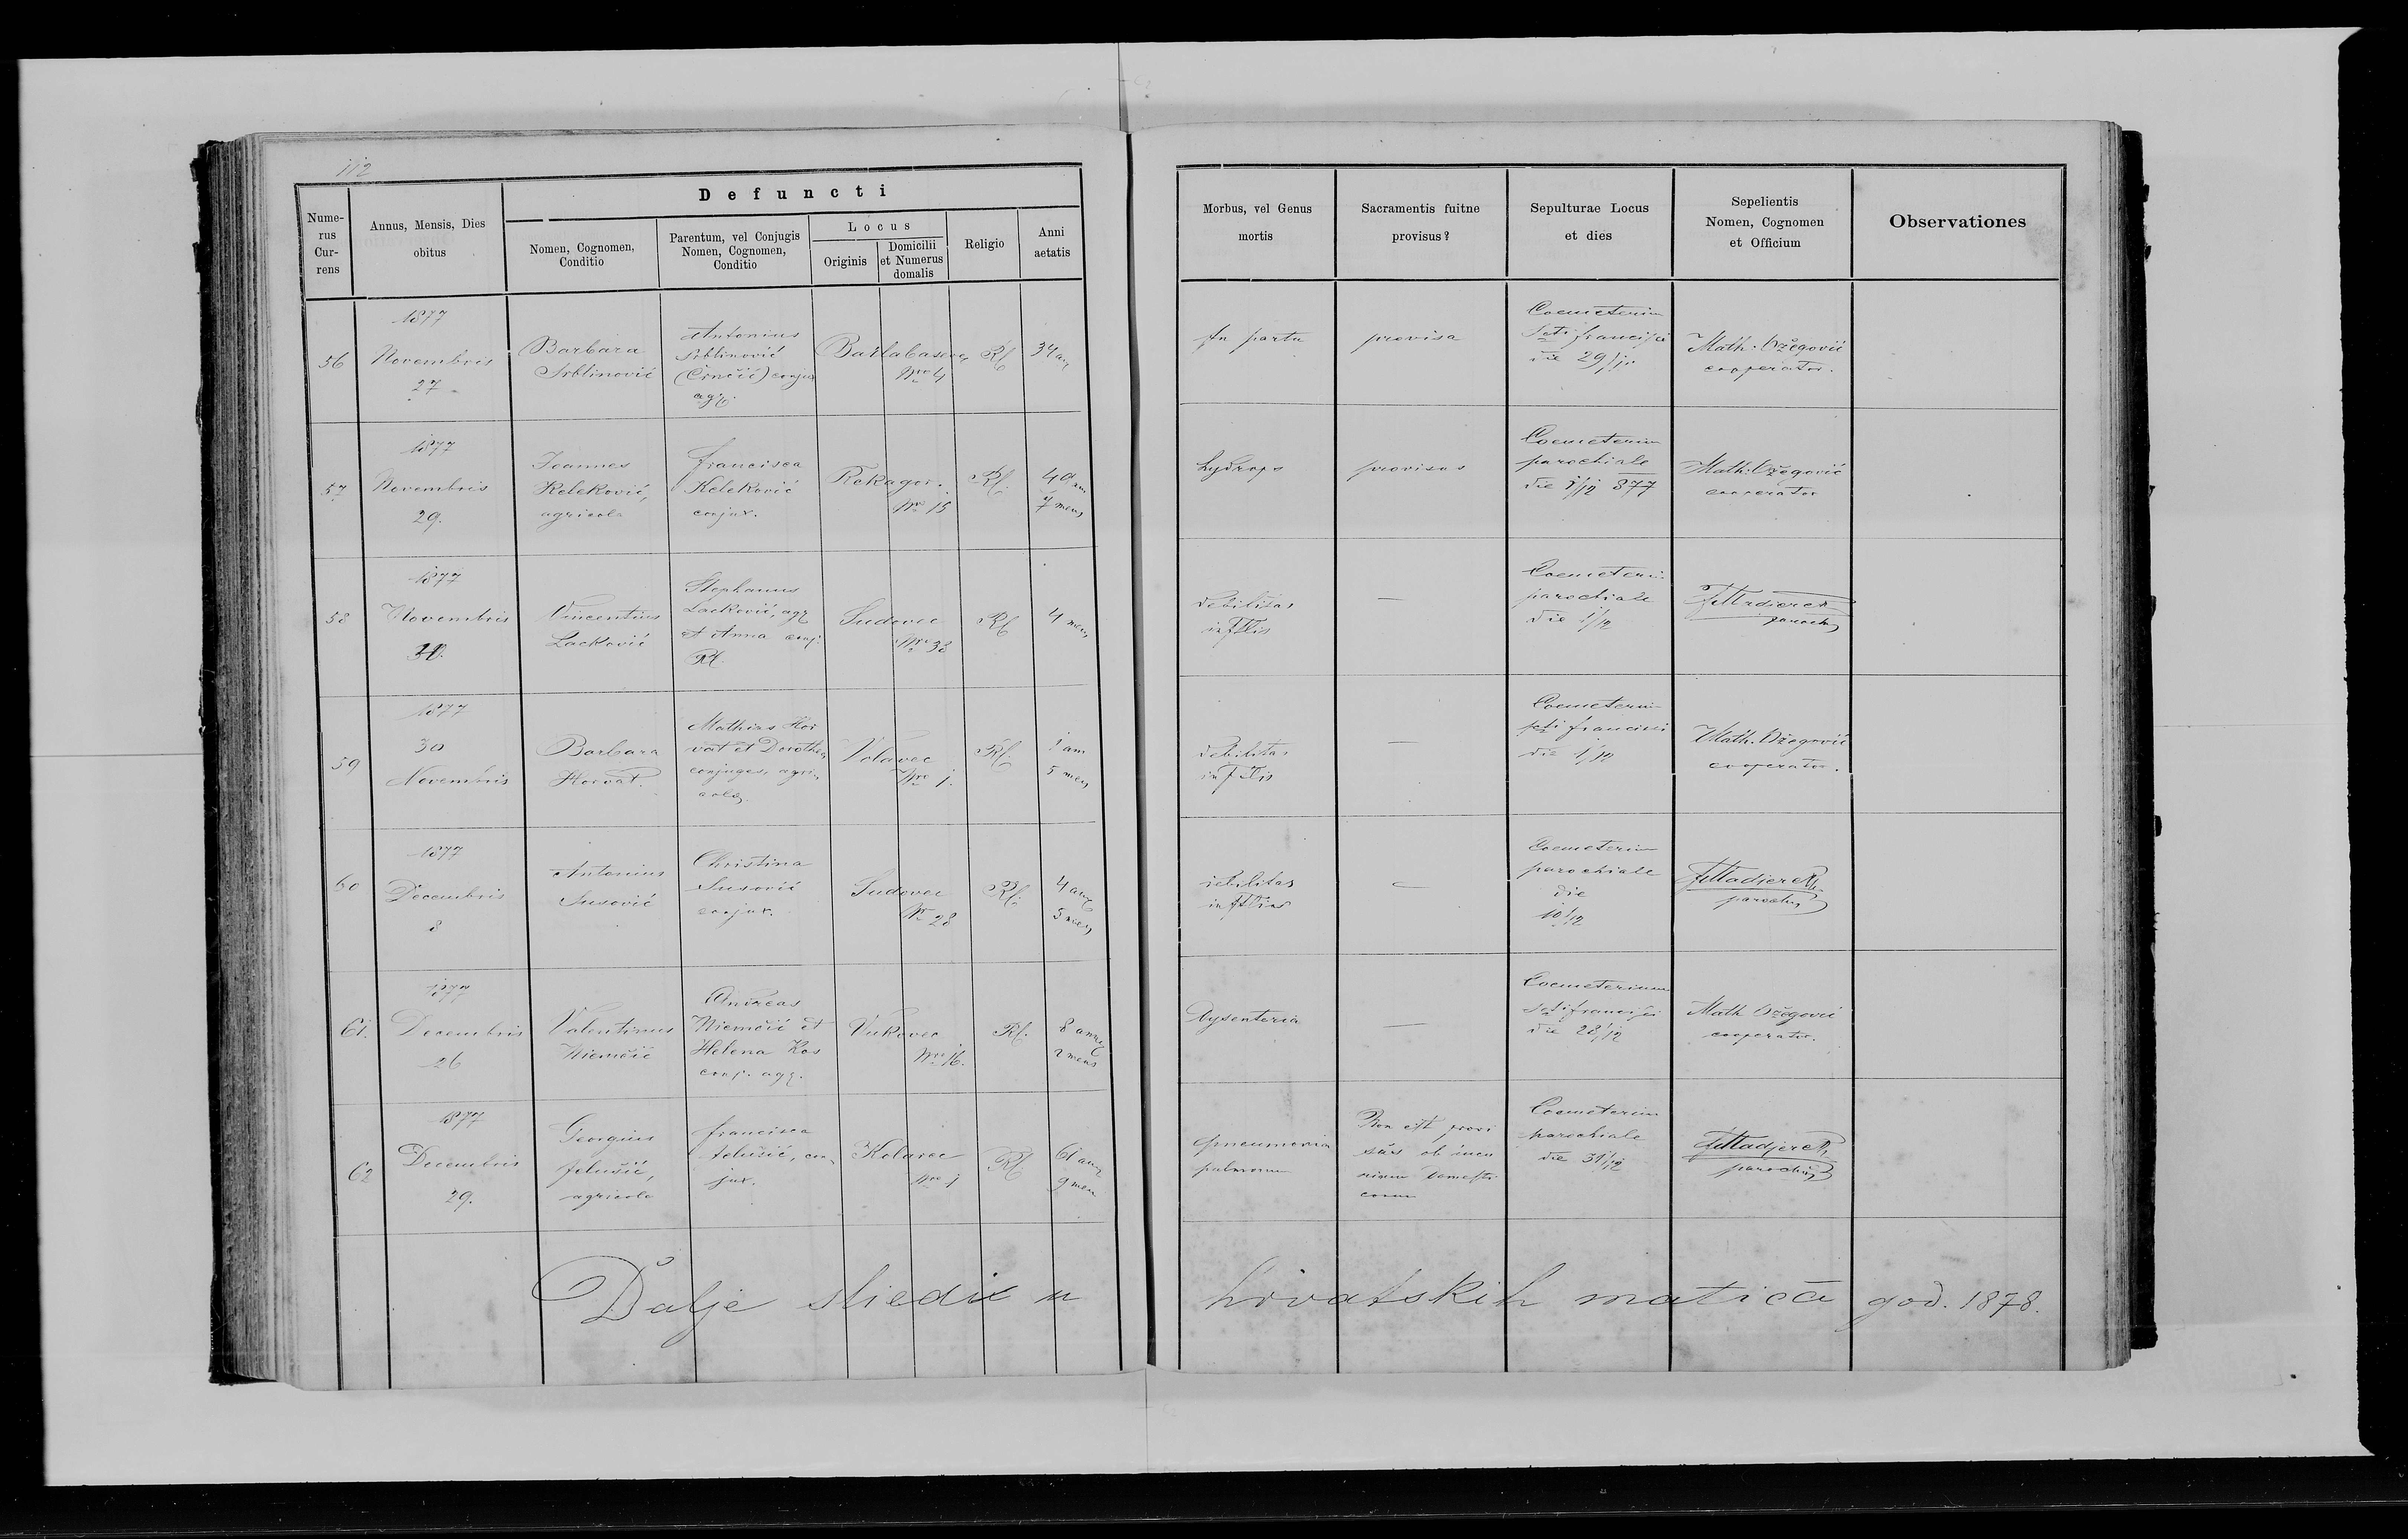 112
Defuncti
Numerus Currens
Annus, Mensis, Dies obitus
Nomen, Cognomen, Conditio
Parentum, vel Conjugis Nomen, Cognomen, Conditio
Locus
Originis
Domicilii et Numerus domalis
Religio
Anni aetatis
Morbus, vel Genus mortis
Sacramentis fuitne provisus?
Sepulturae Locus et dies
Sepelientis Nomen, Cognomen et Officium
Observationes
56
1877
Novembris
27
Barbara
Srblinović
Antonius
Srblinović
(Črnčić) conjux
Nro 4
34
In partu
provisa
Coemeterium
Scti francisci
die 29/11
Math: Ožegović
cooperator.
57
1877
Novembris
29.
Joannes
Keleković,
agricola
francisca
Keleković
conjux.
Rekagor.
Nro 15
Hydrops
provisus
Coemeterium
parochiale
die 1/12 877
Math: Ožegović
cooperator
58
1877
Novembris
30.
Vincentius
Lacković
Stephanus
Lacković, agr
et Anna conj.
Sudovec
Nro 38
4 mens
debilitas
—
parochiale
die 1/12
parochus
59
1877
30
Novembris
Barbara
Horvat.
Mathias Hor
vat et Dorothea
conjuges, agri
colæ.
Volavec
Nro 1.
5 mens
debilitas
—
Scti francisci
die 1/12
Math. Ožegović
cooperator.
60
1877
Decembris
8
Antonius
Susović
Christina
Susović
conjux.
Sudovec
Nr 28
5 mens
debilitas
—
Coemeterium
parochiale
die
10/12
parochus
61.
1877
Decembris
26
Valentinus
Niemčić
Andreas
Niemčić et
Helena Kos
conj. agg.
Vukovec
Nro 16.
2 mens
Dysenteria
—
Coemeterium
Scti francisci
die 28/12
Math Ožegović
cooperator.
62
1877
Decembris
29.
Georgius
Jelušić,
agricola
francisca
Jelušić, con
jux.
Kolarec
Nro 1
9 mens
pneumonia
pulmonum
Non est provi
sus ob incu
riam domesti
corum
Coemeterium
parochiale
die 31/12
parochus
Dalje sliedie u hrvatskih matica god. 1878.